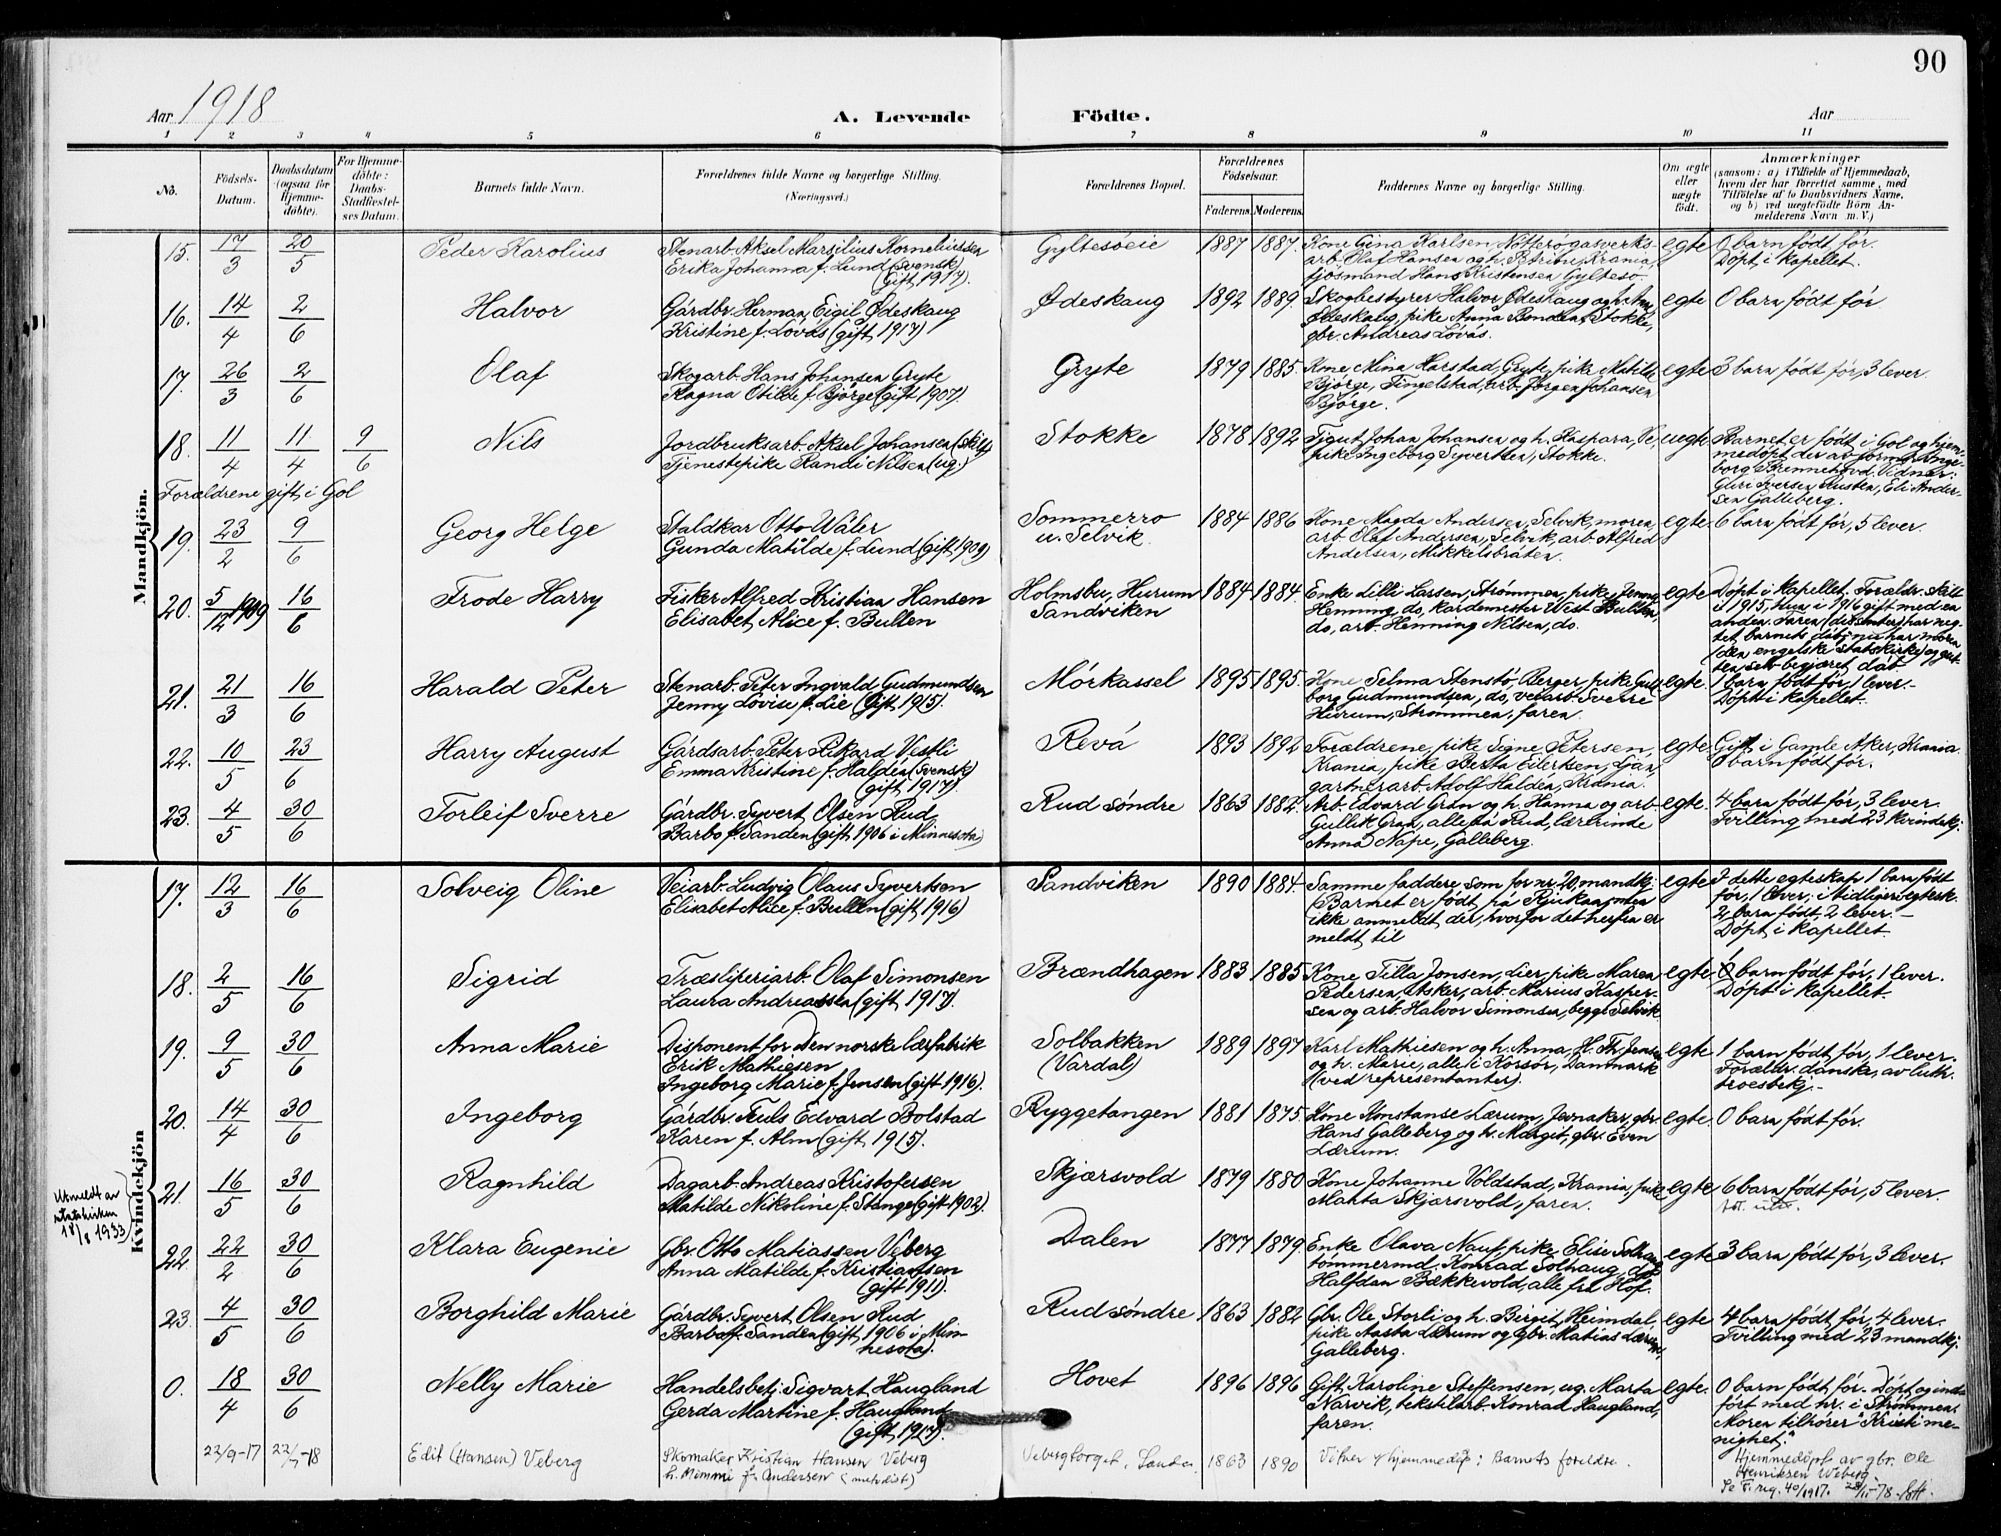 90
Aar 1918
A. Levende Födte.
Aar
1 2 3 4 5 6 7 8 9 10 11
No.
Födsels-Datum.
Daabsdatum (ogsaa for Hjemme-döbte).
For Hjemme-döbte: Daabs-Stadfæstel-ses Datum.
Barnets fulde Navn.
Forældrenes fulde Navne og borgerlige Stilling. (Næringsvei.)
Forældrenes Bopæl.
Forældrenes Födselsaar.
Faderens. Moderens.
Faddernes Navne og borgerlige Stilling.
Om ægte eller uægte födt.
Anmærkninger
(saasom: a) i Tilfælde af Hjemmedaab, hvem der har forrettet samme, med Tilföielse af to Daabsvidners Navne, og b) ved uægtefödte Börn An-melderens Navn m. V.)
Mandkjön.
15. 17/3 20/5 Peder Karolius
Stenarb. Aksel Marsilius Korneliussen
Erika Johanna f. Lund (svensk)
(gift 1917).
Gyltesöeie 1887 1887.
Kone Gina Karlsen, Nötterö, gasverks-
arb. Olaf Hansen og h. Petrine, Krania,
sjösmand Hans Kristensen Gyltesö
egte 0 barn födt för.
Döpt i kapellet.
16. 14/4 2/6 Halvor
Gårdbr. Herman Eigil Ødeskaug
Kristine f. Lövås (gift 1917)
Ødeskaug 1892 1889.
Skogbestyrer Halvor Ødeskaug og
Ødeskaug, pike Anna Bonden, Stokke,
gbr. Andreas Lövås.
egte 0 barn födt för
17. 26/3 2/6 Olaf
Skogarb. Hans Johansen Gryte
Ragna Otilde f. Björge (gift 1907).
Gryte 1879 1885.
Kone Mina Harstad, Gryte, pike Matilde
Björge, Tingelstad, arb. Jörgen Johansen
Björge.
egte 3 barn födt för, 3 lever.
18. 11/4 11/4 9/6 Nils
Jordbruksarb. Aksel Johansen (skilt)
Tjenestepike Randi Nilsen (ug.)
Forældrene gift i Gol
Stokke 1878 1892
Johan Johansen og h. Kaspara,
pike Ingeborg Syvertsen, Stokke.
uegte. Barnet er födt i Gol og hjem-
medöpt der av jormor Inge-
borg Brennehovd. Vidner:
Guri Iversen Rusten, Eli Ander-
sen Galleberg.
19. 23/2 9/6 Georg Helge
Staldkar Otto Wåler
Gunda Matilde f. Lund (gift 1909)
Sommerro
u. Selvik 1884 1886
Kone Magda Andersen, Selvik, moren,
arb. Olaf Andersen, Selvik, arb. Alfred
Andersen, Mikkelsbråten.
egte. 6 barn födt för, 5 lever.
20. 5/12 1909 16/6 Frode Harry
Fisker Alfred Kristian Hansen
Elisabet Alice f. Bullen
Holmsbu, Hurum
Sandviken 1884 1884.
Enke Lilli Lassen, Strömmen, pike Jenny
Henning do, kardemester West Bullen,
do, arb. Henning Nilsen, do.
egte Döpt i kapellet. Forældr. skilt
i 1915, hun i 1916 gift med en
anden. Faren (dissenter) har neg-
tet barnets dåb; nu har moren
(den engelske statskirke) og gut-
ten selv begjæret dåb
21. 21/3 16/6 Harald Peter
Stenarb. Peter Ingvald Gudmundsen
Jenny Lovise f. Lie (gift 1915).
Mörkassel 1895 1895.
Kone Selma Stenstö, Berger, pike Gud-
borg Gudmundsen, do, verarb. Sverre
Hurum, Strömmen, faren.
egte. 1 barn födt för, 1 lever.-
Döpt i kapellet.
22. 10/5 23/6 Harry August
Gårdsarb. Peter Rikard Vestli
Emma Kristine f. Haldén (svensk)
(gift 1917)
Revå 1893 1892
Forældrene, pike Signe Petersen,
Krania, pike Berta Eilertsen,
gartnerarb. Adolf Haldén, Krania.
egte. Gift i Gamle Aker, Krania.
0 barn födt för.
23. 4/5 30/6 Torleif Sverre
Gårdbr. Syvert Olsen Rud
Barbo f. Sanden (gift 1906 i Minnesota)
Rud söndre 1863 1882.
Arb. Edvard Gran og h. Hanna og arb.
Gullik Gran, alle på Rud, lærerinde
Anna Nape, Galleberg.
egte. 4 barn födt för, 3 lever.
Tvilling med 23 kvindekj.
Kvindekjön
17. 12/3 16/6 Solveig Oline
Veiarb. Ludvig Olaus Syvertsen
Elisabet Alice f. Bullen (gift 1916)
Sandviken 1890 1884.
Samme faddere som for nr. 20, mandkj.
(Barnet er födt på Rjukan, men
ikke anmeldt der, hvorfor det herfra er
meldt til
egte. I dette egteskap 1 barn födt
för, 1 lever; i tidligere egtesk.
2 barn födt, 2 lever.-
Döpt i kapellet.
18. 2/5 16/6 Sigrid
Træsliperiarb. Olaf Simonsen
Laura Andreassen (gift 1917).
Brændhagen 1883 1885
Kone Tilla Jonsen, Lier, pike Maren
Pedersen, Asker, arb. Marius Kasper-
sen og arb. Halvor Simonsen, begge Selvik
egte. barn födt för, 1 lever.
Döpt i kapellet.
19. 9/5 30/6 Anna Marie
Disponent for Den norske lærfabrik
Erik Mathiesen
Ingeborg Marie f. Jensen (gift 1916).
Solbakken
(Vardal) 1889 1897
Karl Mathiesen og h. Anna, H. Th. Jensen
og h. Marie, alle i Korsör, Danmark
(ved representanter).
egte. 1 barn födt för, 1 lever.
Forældr. danske, av luth.
troesbekj.-
20. 14/4 30/6 Ingeborg
Gårdbr. Truls Edvard Bolstad
Karen f. Alm (gift 1915).
Ryggetangen 1881 1875.
Kone Konstanse Lærum, Jevnaker, gbr.
Hans Galleberg og h. Margit, gbr. Even
Lærum.
egte. 0 barn födt för.
Utmeldt av
statskirken
18/8 1933
21. 16/5 30/6 Ragnhild
Dagarb. Andreas Kristofersen
Matilde Nikoline f. Stange (gift 1902).
Skjærsvold 1879 1880
Kone Johanne Voldstad, Krania, pike
Marta Skjærsvold, faren.
egte 6 barn födt för, 5 lever.
22 22/2 30/6 Klara Eugenie
Gbr. Otto Matiassen Veberg
Anna Matilde f. Kristiansen
(gift 1911).
Dalen 1877 1879.
Enke Olava Nauf, pike Elise Solhaug
tömmermd. Konrad Solhaug,
Halfdan Bækkevold, alle fra Hof.
egte 3 barn födt för, 3 lever.
23. 4/5 30/6 Borghild Marie
Gårdbr. Syvert Olsen Rud
Barbo f. Sanden (gift 1906 i Min-
nesota).
Rud söndre 1863 1882
Gbr. Ole Storli og h. Birgit, Heimdal,
pike Aasta Lærum og gbr. Matias Lærum,
Galleberg.
egte 4 barn födt för, 4 lever.
Tvilling med 23 mandkj.
0. 18/4 30/6 Nelly Marie
Handelsbetj. Sigvart Haugland
Gerda Martine f. Haugland
(gift 1917).
Hovet 1896 1896
Gift Karoline Steffensen, ug. Marta
Narvik, tekstilarb. Konrad Haugland,
faren.
egte. 0 barn födt för. Döpt og ind-
fört med nr. i Strömmen.
Moren tilhörer "Kristi me-
nighet".
22/9-17 Edit (Hansen) Veberg
Skomaker Kristian Hansen Veberg
h. Mimmi f. Andersen (metodist)
Vebergtorget, Sande 1863 1890
Vitner v/hjemmedåp: Barnets foreldre.
Hjemmedöpt av gbr. Ole
Henriksen Weberg.
Se F. reg. 40/1917.